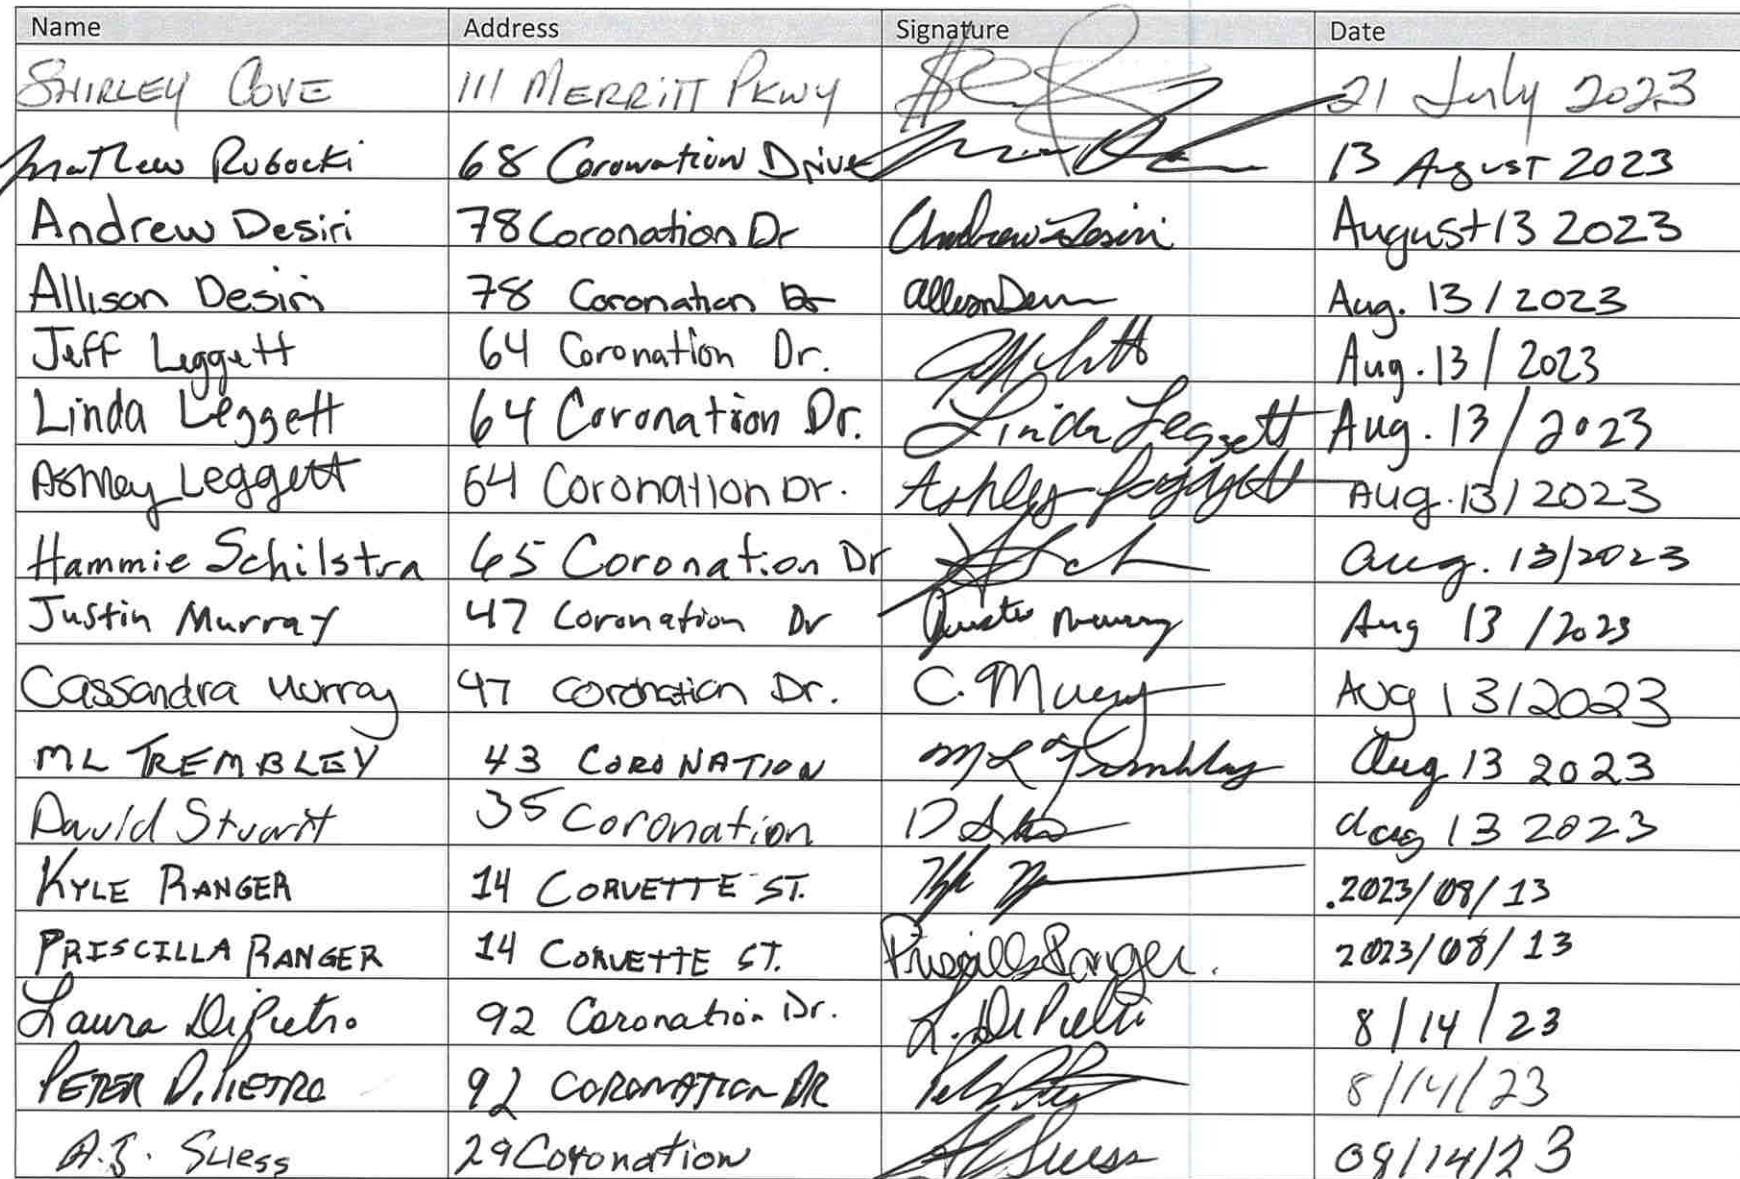 Name Address Signature Date
SHIRLEY COVE 111 MERRITT PKWY 21 July 2023
Mathew Rubocki 68 Coronation Drive 13 Agust 2023
Andrew Desiri 78 Coronation Dr Andrew Desiri August 13 2023
Allison Desiri 78 Coronation Dr Allison Aug. 13/2023
Jeff Leggett 64 Coronation Dr. Aug. 13/2023
Linda Leggett 64 Coronation Dr. Linda Leggett Aug. 13/2023
Ashley Leggett 64 Coronation Dr. Ashley Leggett Aug. 13/2023
Hammie Schilstra 65 Coronation Dr Aug. 13/2023
Justin Murray 47 Coronation Dr Justin Murray Aug 13/2023
Cassandra Murray 47 Coronation Dr. C. Murray Aug 13/2023
ML TREMBLEY 43 CORONATION ML Trembley Aug 13 2023
David Stuart 35 Coronation Aug 13 2023
KYLE RANGER 14 CORVETTE ST. 2023/08/13
PRISCILLA RANGER 14 CORVETTE ST. Priscilla Ranger. 2023/08/13
Laura DiPietro 92 Coronation Dr. L. DiPietro 8/14/23
PETER DiPIETRO 92 CORONATION DR 8/14/23
A.J. Suess 29 Coronation AJ Suess 08/14/23